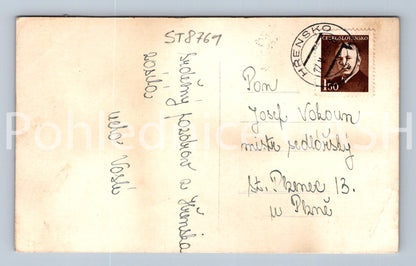 ST8761
Srdečný pozdrav z Hřenska
zasílá
HŘENSKO
ČESKOSLOVENSKO
1.50
Pan
Josef Vokoun
mistr sedlářský
St. Plzenec 13.
u Plzně
Pohlednice
SH